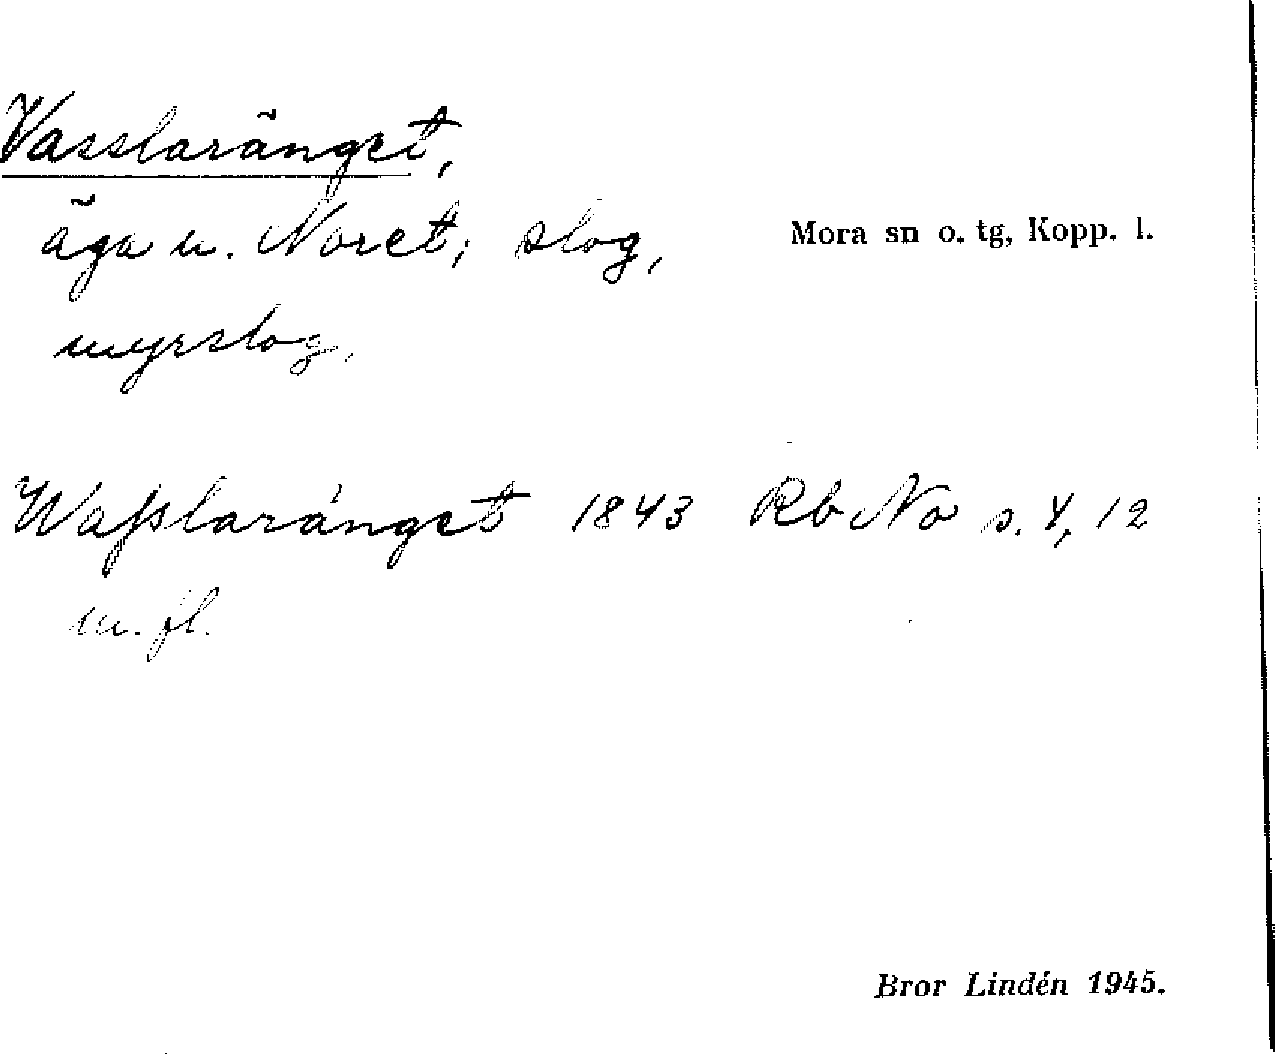 Vasslaränget,
äga u. Noret; slog,
Mora sn o. tg, Kopp. l.
myrslog.
Waſslaränget 1843 Rb No s. 4, 12
m. fl.
Bror Lindén 1945.